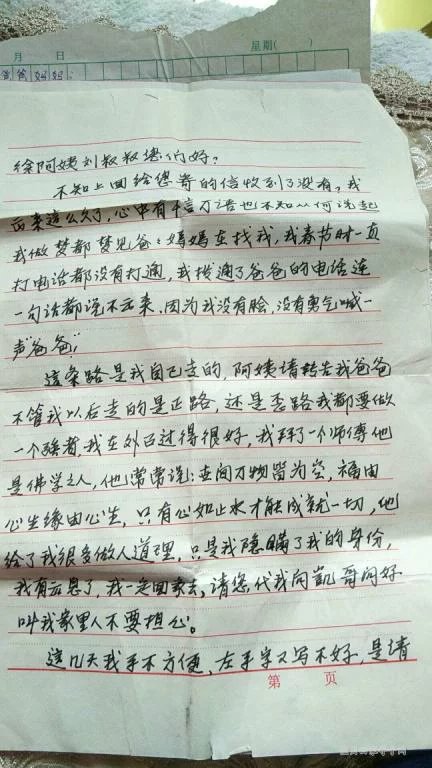 月 日 星期( )
爸爸妈妈:
徐阿姨刘叔叔您们好?
不知上回给您寄的信收到了没有,我
出来这么久了,心中有千言万语也不知从何说起
我做梦都梦见爸爸妈妈在找我,我春节时一直
打电话都没有打通,我接通了爸爸的电话连
一句话都说不出来,因为我没有脸,没有勇气喊一
声"爸爸"
这条路是我自己走的,阿姨请转告我爸爸
不管我以后走的是正路,还是歪路我都要做
一个强者,我在外边过得很好,我拜了一个师傅他
是佛学之人,他常常说:世间万物皆为空,福由
心生缘由心生,只有心如止水才能成就一切,他
给了我很多做人道理,只是我隐瞒了我的身份,
我有出息了,我一定回家去,请您代我向凯哥问好
叫我家里人不要担心。
這几天我手不方便,左手学又写不好,是请
第 页